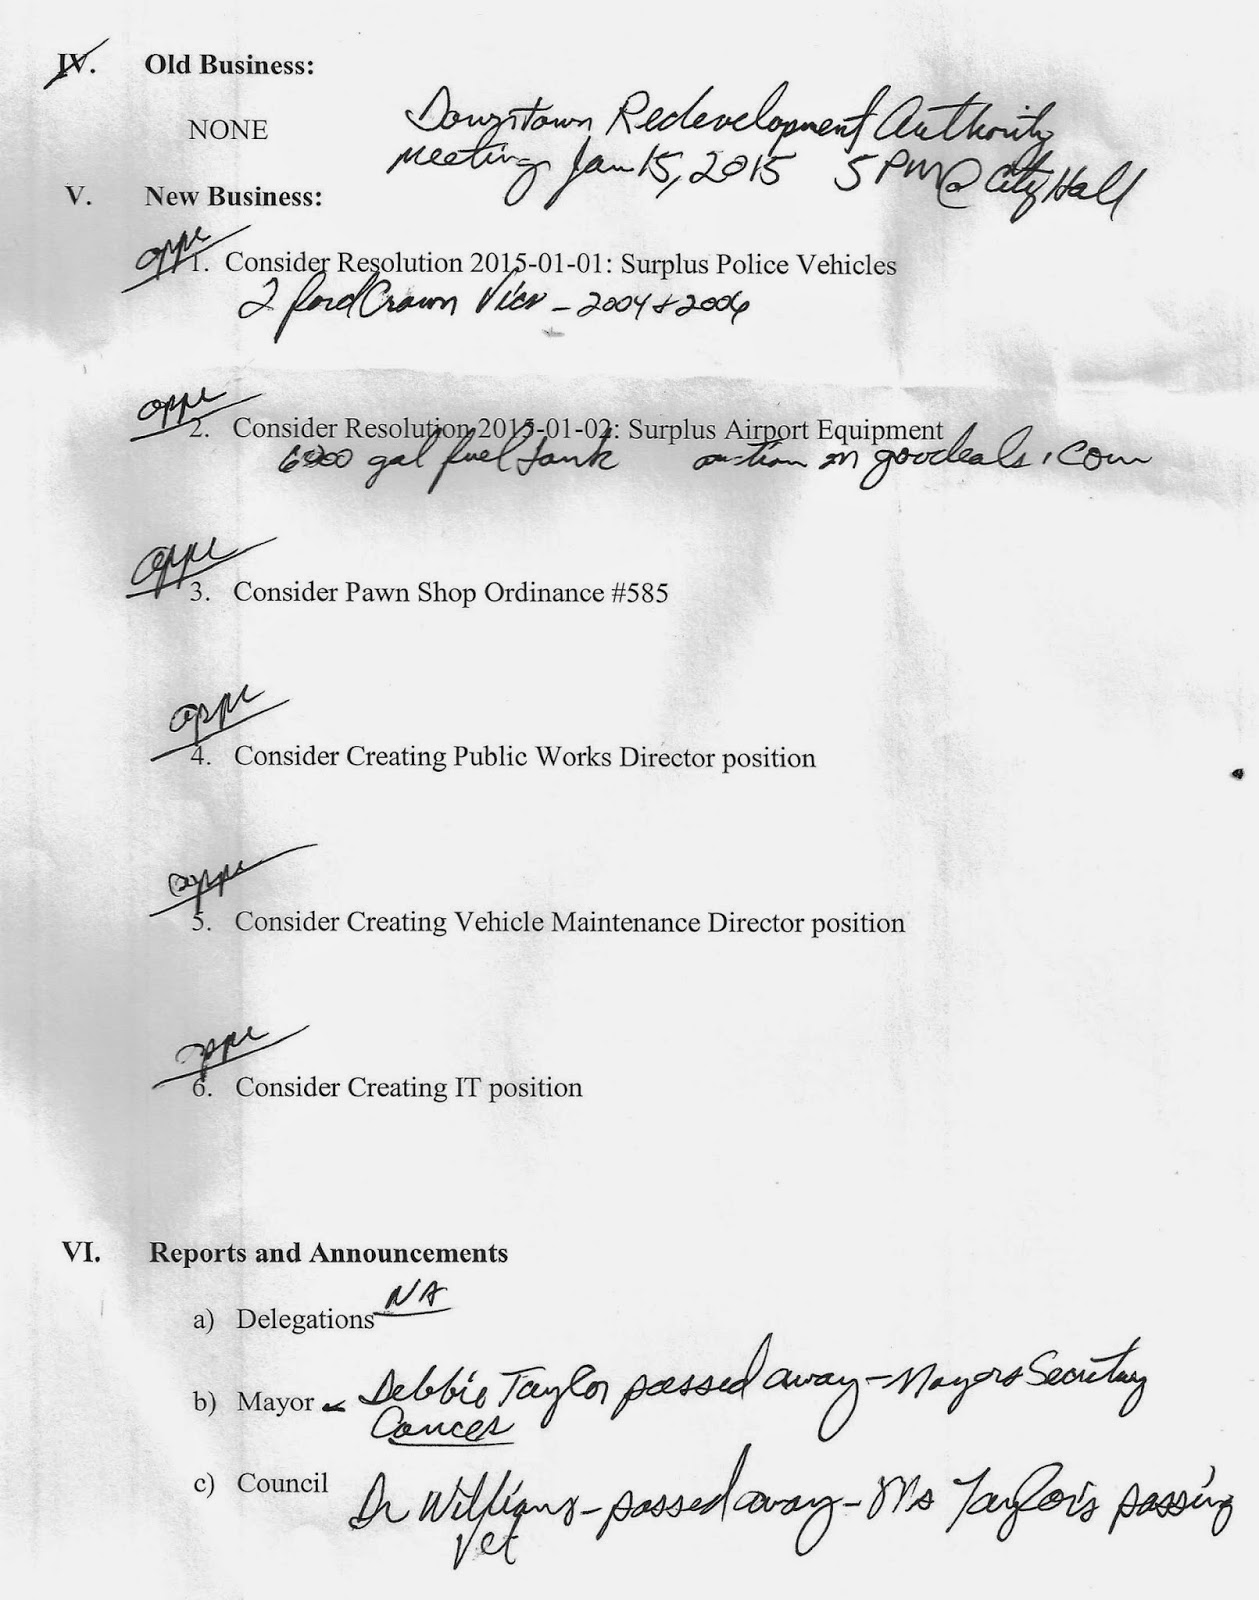 IV. Old Business:
NONE
Downtown Redevelopment Authority
Meeting Jan 15, 2015 5 PM @ City Hall
V. New Business:
appr
1. Consider Resolution 2015-01-01: Surplus Police Vehicles
2 Ford Crown Vics - 2004 + 2006
appr
2. Consider Resolution 2015-01-02: Surplus Airport Equipment
gal fuel tank auction on goodeals.com
appr
3. Consider Pawn Shop Ordinance #585
appr
4. Consider Creating Public Works Director position
appr
5. Consider Creating Vehicle Maintenance Director position
appr
6. Consider Creating IT position
VI. Reports and Announcements
a) Delegations NA
b) Mayor - Debbie Taylor passed away - Mayors Secretary
Cancer
c) Council Dr Williams - passed away - Ms Taylor's passing
Vet